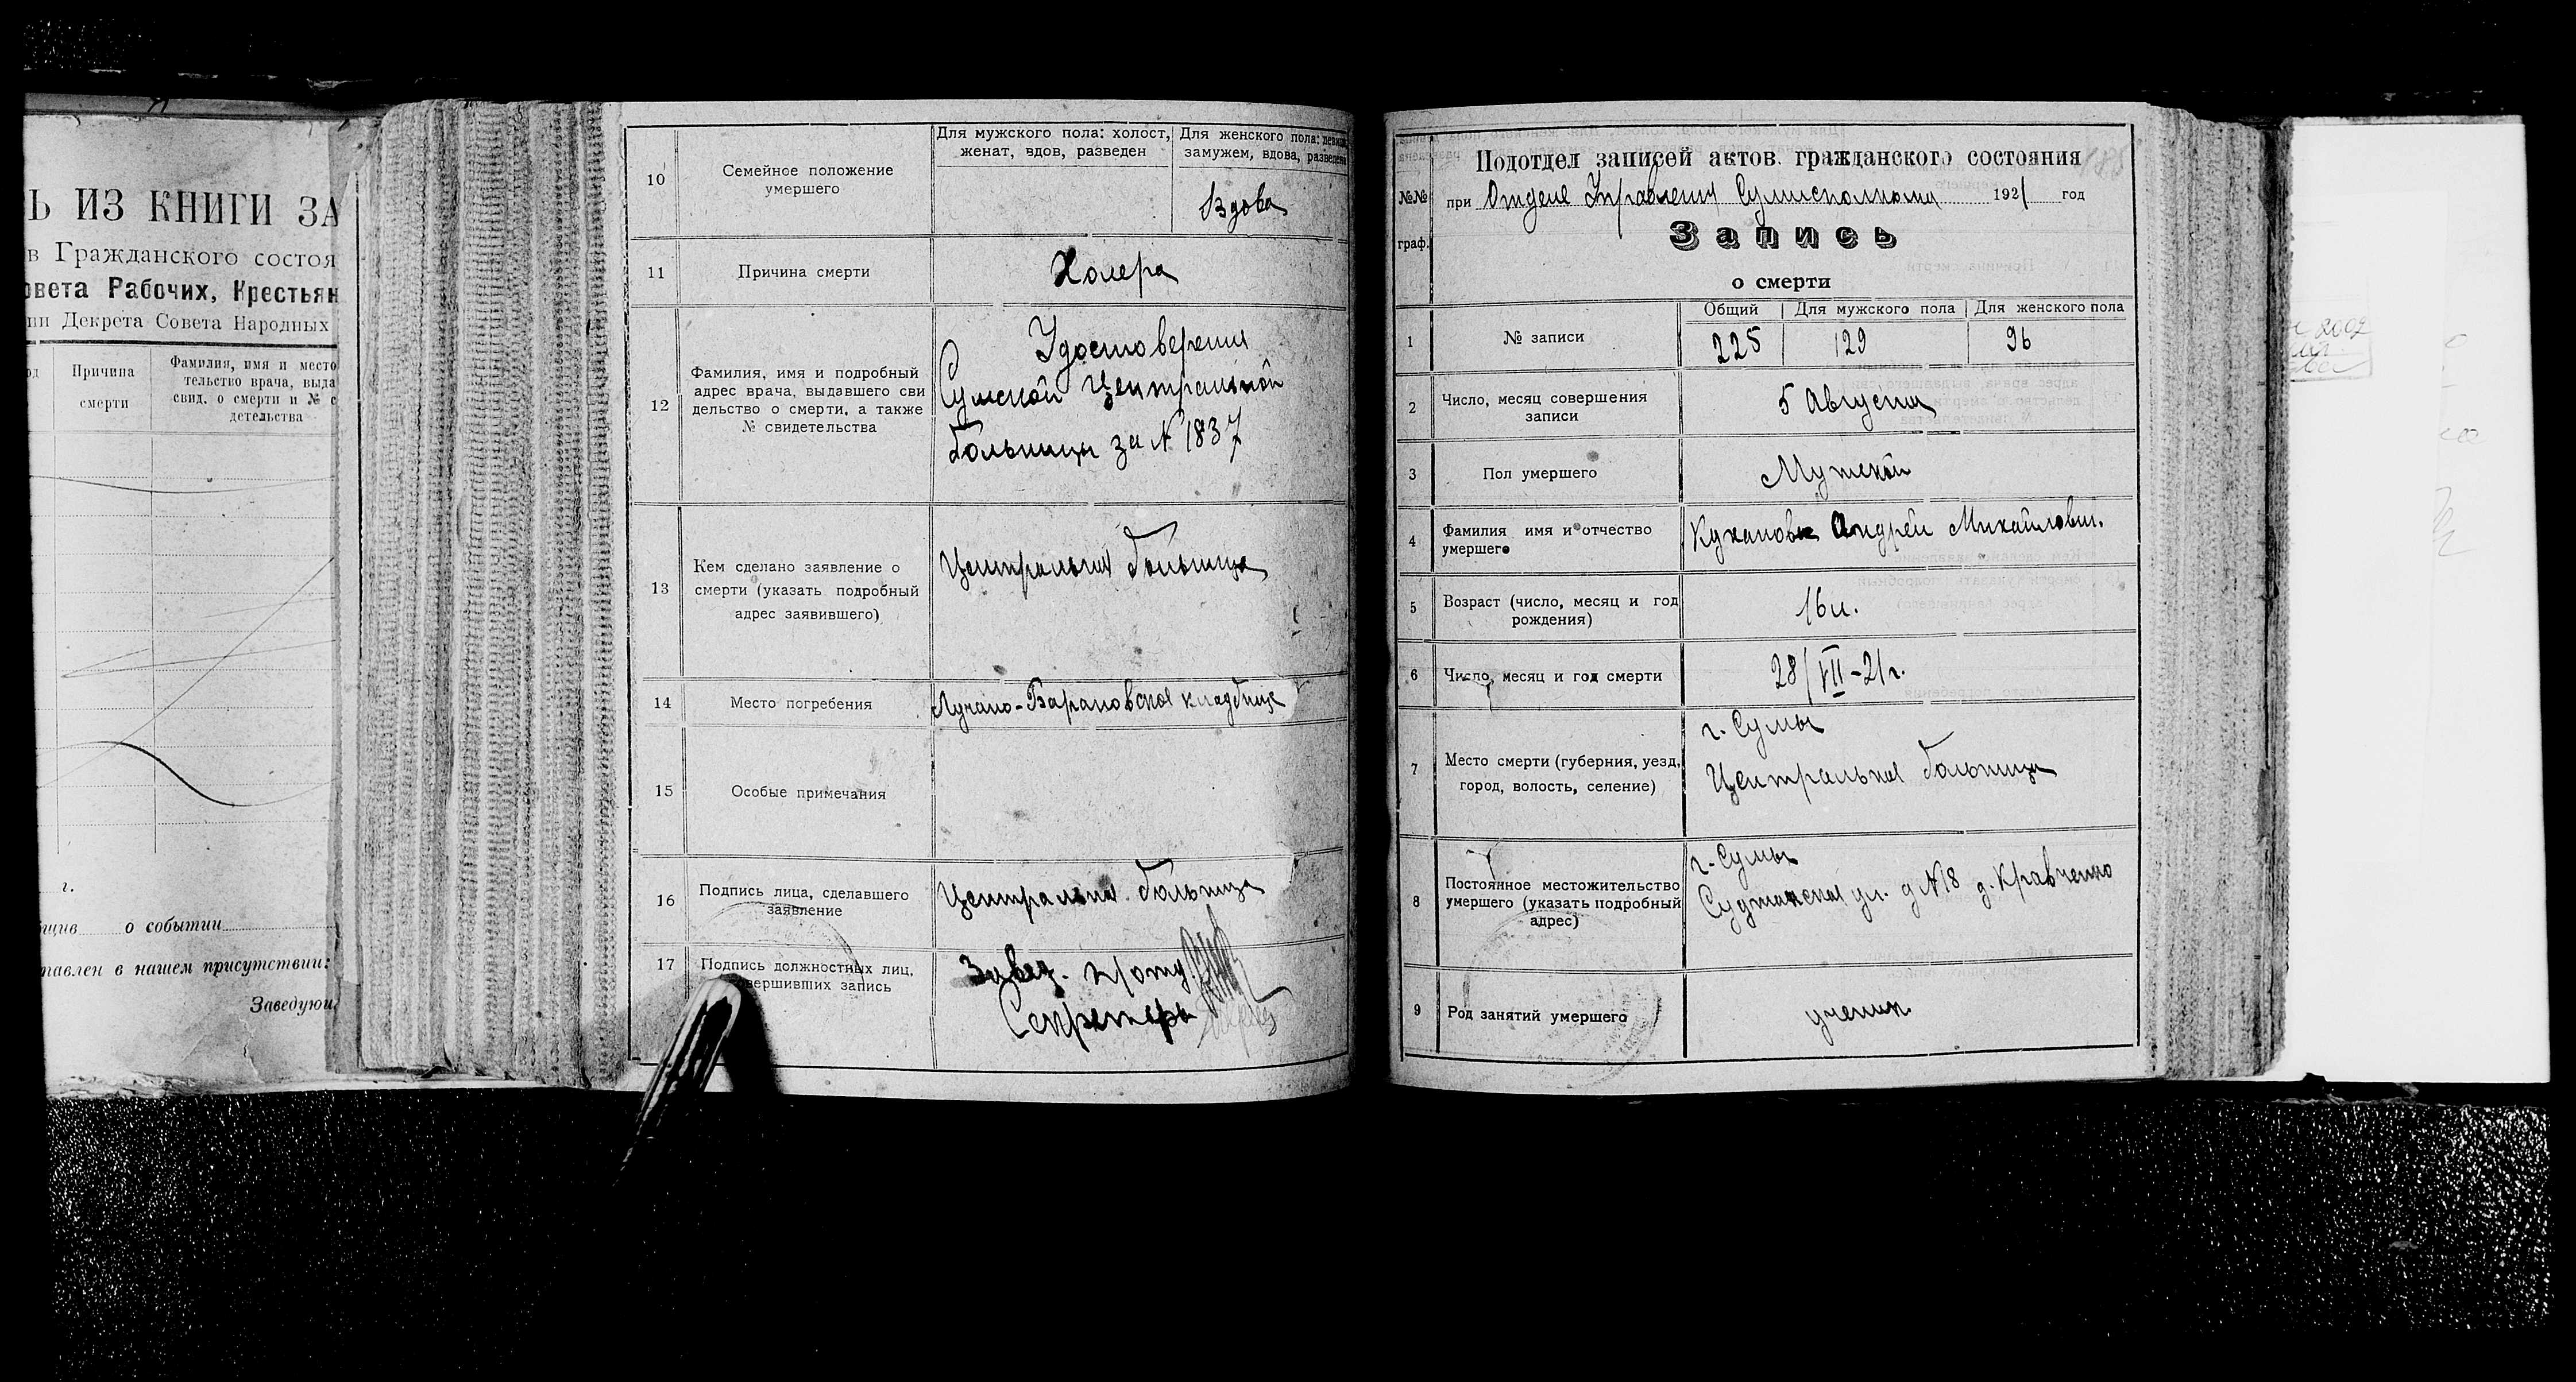 Ь ИЗ КНИГИ ЗА
в Гражданского состоя
овета Рабочих, Крестьян
нии Декрета Совета Народных
Причина
смерти
Фамилия, имя и место
тельство врача, выда
свид. о смерти и № с
детельства
г.
бщив о событии
тавлен в нашем присутствии:
Заведую
10
Семейное положение
умершего
Для мужского пола: холост,
женат, вдов, разведен
Для женского пола: девица
замужем, вдова, разведена
Вдова
11
Причина смерти
Холера
12
Фамилия, имя и подробный
адрес врача, выдавшего сви
дельство о смерти, а также
№ свидетельства
Удостоверения
Сумской Центральной
больницы за № 1837
13
Кем сделано заявление о
смерти (указать подробный
адрес заявившего)
Центральная больница
14
Место погребения
Барановское кладбище
15
Особые примечания
16
Подпись лица, сделавшего
заявление
Центральная больница
17
Подпись должностных лиц,
вершивших запись
Завед. п/отд.
Секретарь
№№
граф.
Подотдел записей актов. гражданского состояния
при Отделе Управления Сумисполкома 1921 год
Запись
о смерти
1
№ записи
Общий
Для мужского пола
Для женского пола
225
129
96
2
Число, месяц совершения
записи
5 Августа
3
Пол умершего
Мужской
4
Фамилия имя и отчество
умершего
Андрей Михайлович.
5
Возраст (число, месяц и год
рождения)
16 л.
6
Число, месяц и год смерти
28/VII-21 г.
7
Место смерти (губерния, уезд,
город, волость, селение)
г. Сумы
Центральная больница
8
Постоянное местожительство
умершего (указать подробный
адрес)
г. Сумы
Суджанская ул. д №18 д. Кравченко
9
Род занятий умершего
ученик